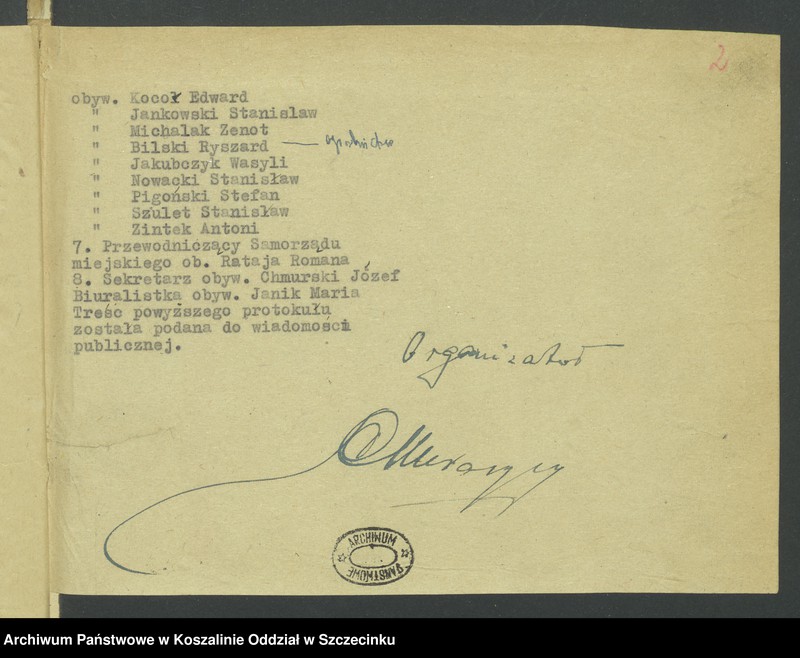 2
obyw. Kocoł Edward
" Jankowski Stanislaw
" Michalak Zenot
" Bilski Ryszard —
" Jakubczyk Wasyli
" Nowacki Stanisław
" Pigoński Stefan
" Szulet Stanisław
" Zintek Antoni
7. Przewodniczący Samorządu
miejskiego ob. Rataja Romana
8. Sekretarz obyw. Chmurski Józef
Biuralistka obyw. Janik Maria
Treść powyższego protokułu
została podana do wiadomości
publicznej.
Organizator
ARCHIWUM
PAŃSTWOWE
Archiwum Państwowe w Koszalinie Oddział w Szczecinku